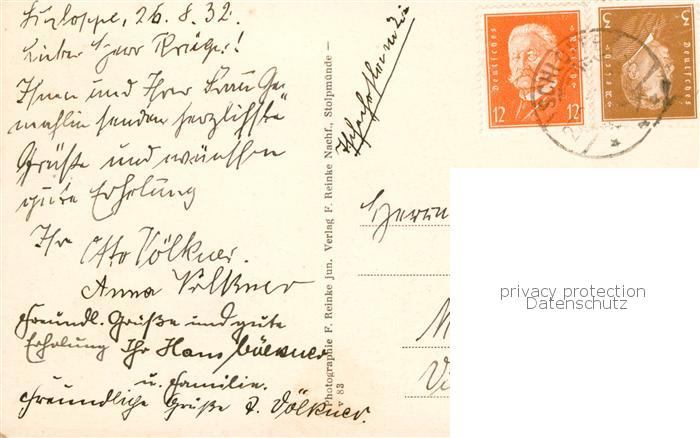 Schloppe, 26.8.32.
Lieber Herr Krüger!
Ihnen und Ihrer Frau Ge-
mahlin senden herzlichste
Grüße und wünschen
gute Erholung
Ihr Otto Völkner.
Anna Völkner
Freundl. Grüße und gute
Erholung Ihr Hans Völkner
u. Familie.
Freundliche Grüße F. Völkner.
Photographie F. Reinke jun. Verlag F. Reinke Nachf., Stolpmünde —
v 83
Deutsches Reich
12 12
Deutsches Reich
3 3
SCHLOPPE
Herrn
privacy protection
Datenschutz